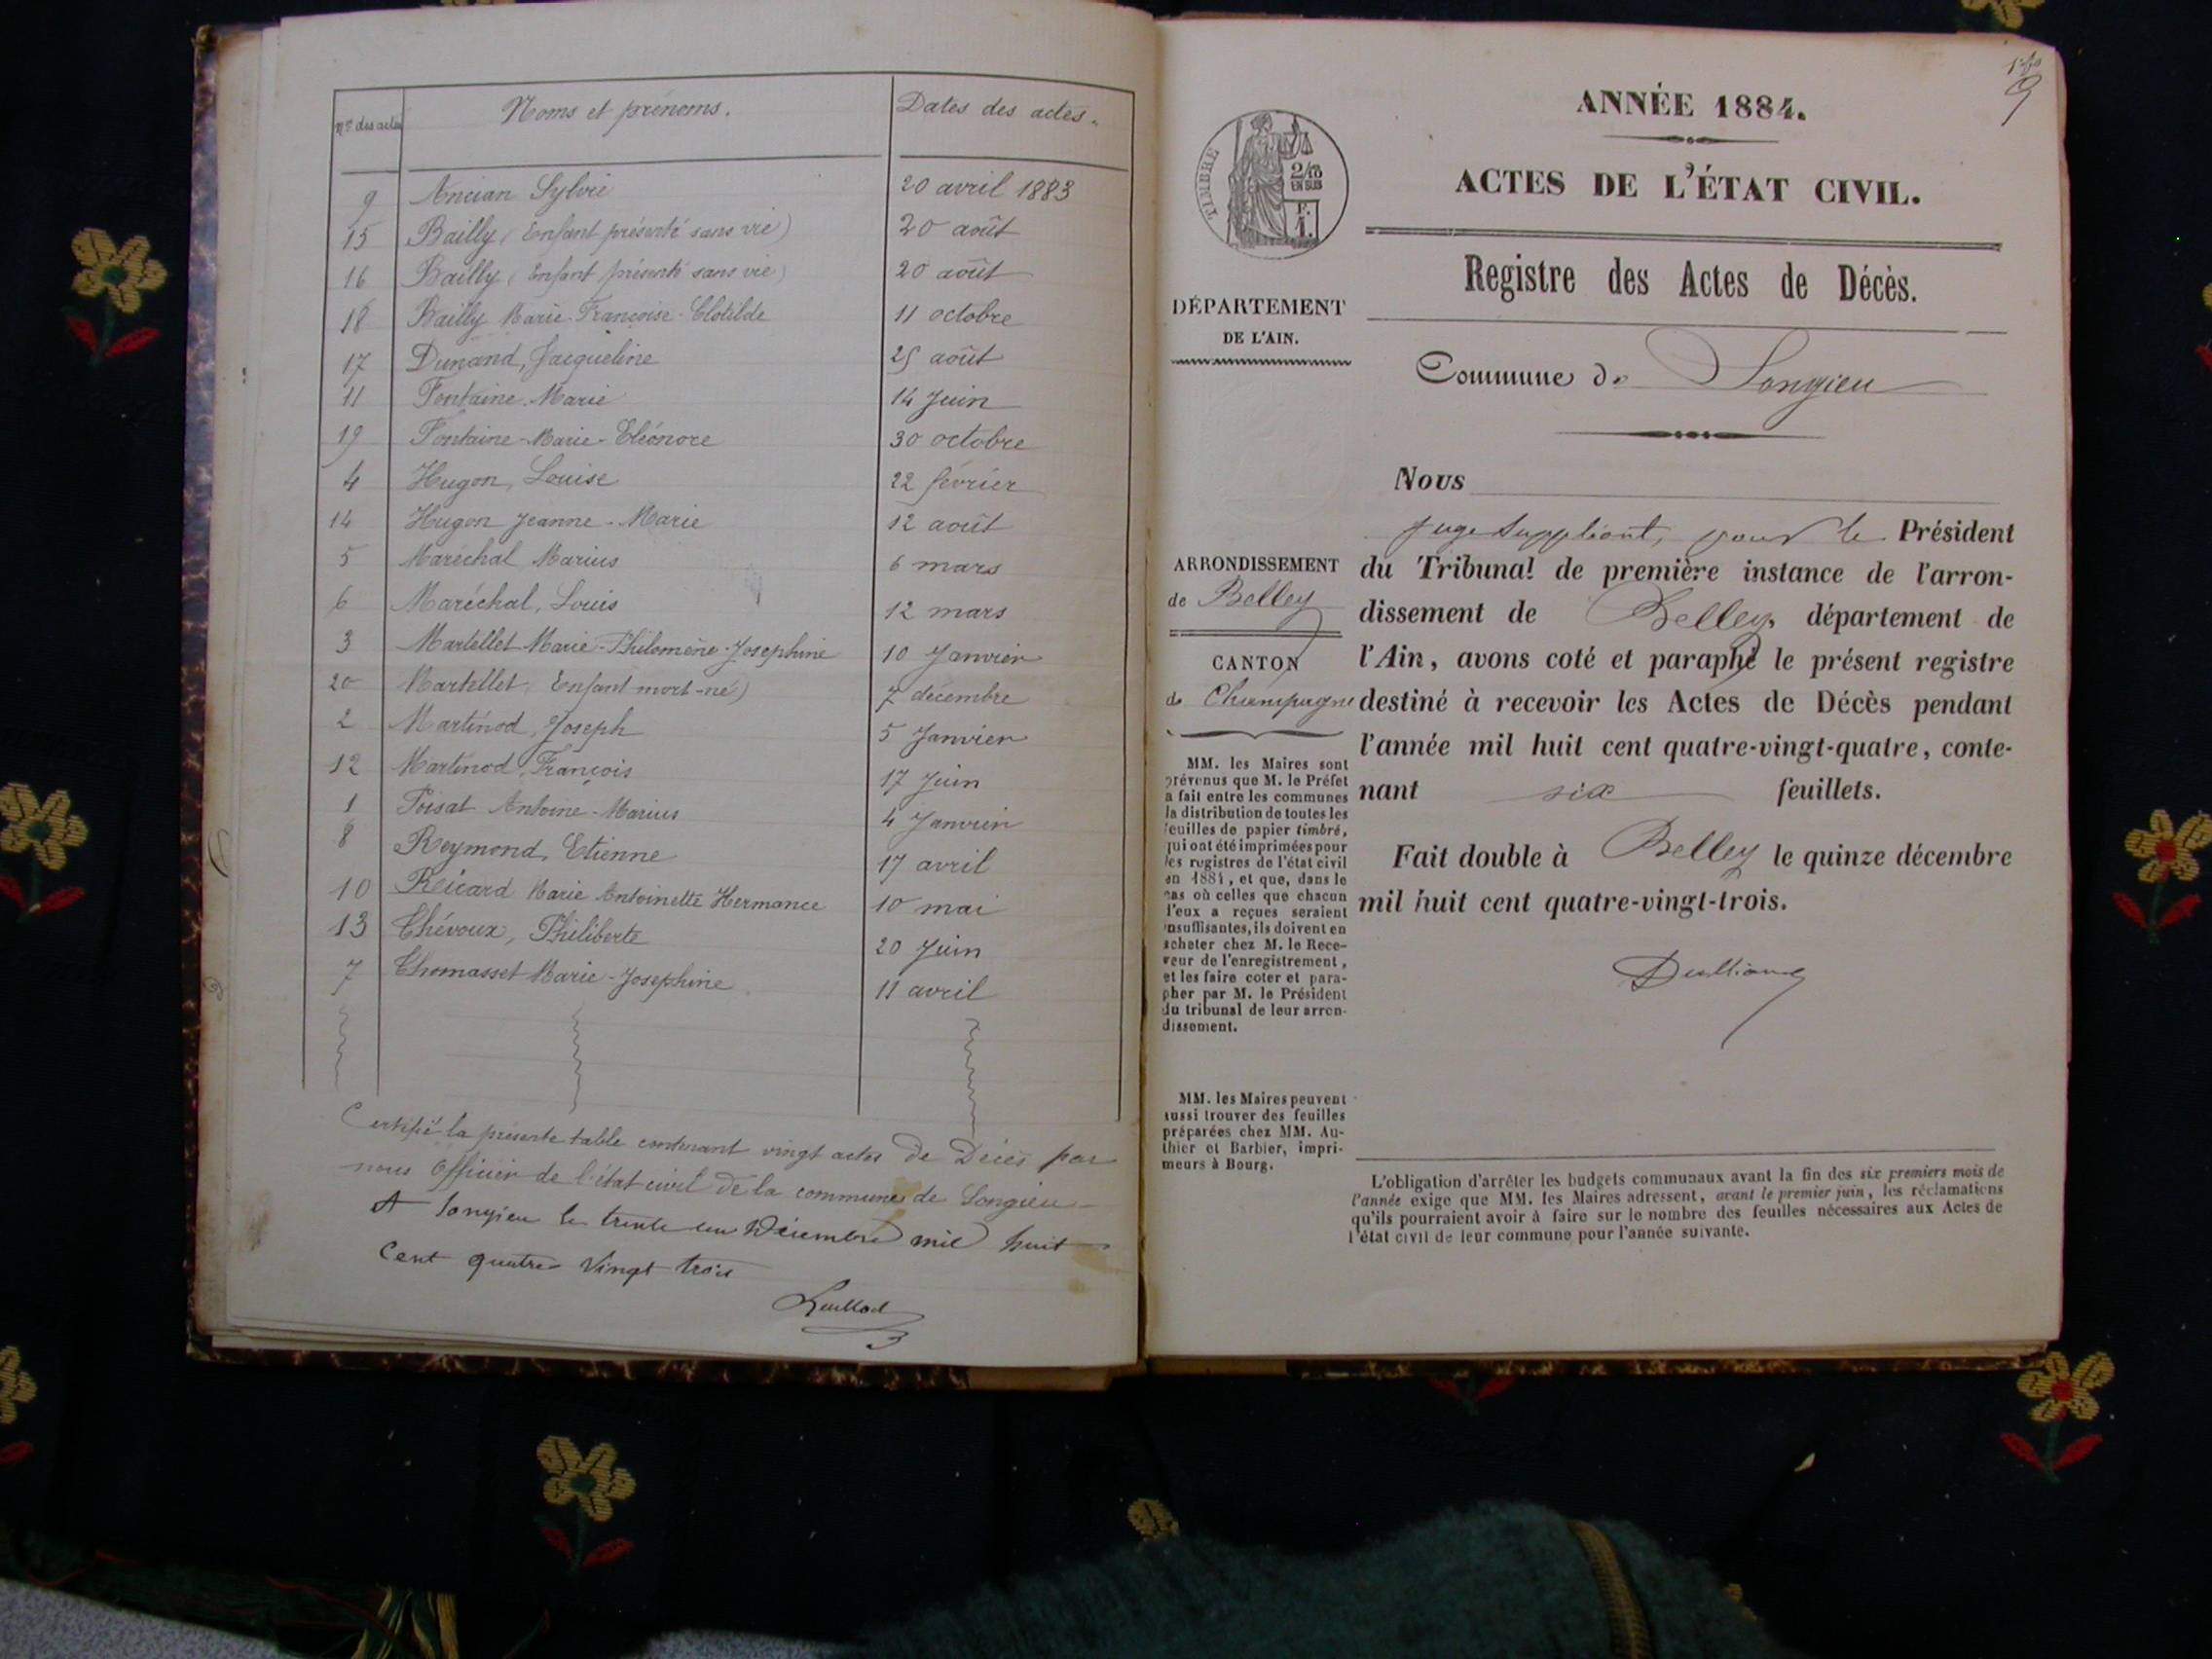 Nos des actes Noms et prénoms. Dates des actes.
9 Ancian Sylvie 20 avril 1883
15 Bailly (Enfant présenté sans vie) 20 août
16 Bailly (Enfant présenté sans vie) 20 août
18 Bailly Marie-Françoise-Clotilde 11 octobre
17 Dunand, Jacqueline 25 août
11 Fontaine Marie 14 Juin
19 Fontaine-Marie-Eléonore 30 octobre
4 Hugon, Louise 22 février
14 Hugon Jeanne-Marie 12 août
5 Maréchal Marius 6 mars
6 Maréchal, Louis 12 mars
3 Martellet Marie-Philomène-Josephine 10 Janvier
20 Martellet (Enfant mort-né) 7 décembre
2 Martinod, Joseph 5 Janvier
12 Martinod, François 17 Juin
1 Poisat Antoine-Marius 4 Janvier
8 Reymond, Etienne 17 avril
10 Marie Antoinette Hermance 10 mai
13 Thévoux, Philiberte 20 Juin
7 Thomasset Marie-Josephine 11 avril
Certifié la présente table contenant vingt actes de Décès par
nous Officier de l'état civil de la commune de Songieu
A Songieu le trente un Décembre mil huit
cent quatre vingt trois
9
ANNÉE 1884.
ACTES DE L'ÉTAT CIVIL.
TIMBRE
2/10
EN SUS
F.
1.
Registre des Actes de Décès.
DÉPARTEMENT
DE L'AIN.
Commune de Songieu
Nous
juge suppléant, pour le Président
du Tribunal de première instance de l'arron-
dissement de Belley, département de
l'Ain, avons coté et paraphé le présent registre
destiné à recevoir les Actes de Décès pendant
l'année mil huit cent quatre-vingt-quatre, conte-
nant six feuillets.
Fait double à Belley le quinze décembre
mil huit cent quatre-vingt-trois.
ARRONDISSEMENT
de Belley
CANTON
de Champagne
MM. les Maires sont
prévenus que M. le Préfet
a fait entre les communes
la distribution de toutes les
feuilles de papier timbré,
qui ont été imprimées pour
les registres de l'état civil
en 1884, et que, dans le
cas où celles que chacun
d'eux a reçues seraient
insuffisantes, ils doivent en
acheter chez M. le Rece-
veur de l'enregistrement,
et les faire coter et para-
pher par M. le Président
du tribunal de leur arron-
dissement.
MM. les Maires peuvent
aussi trouver des feuilles
préparées chez MM. Au-
thier et Barbier, impri-
meurs à Bourg.
L'obligation d'arrêter les budgets communaux avant la fin des six premiers mois de
l'année exige que MM. les Maires adressent, avant le premier juin, les réclamations
qu'ils pourraient avoir à faire sur le nombre des feuilles nécessaires aux Actes de
l'état civil de leur commune pour l'année suivante.